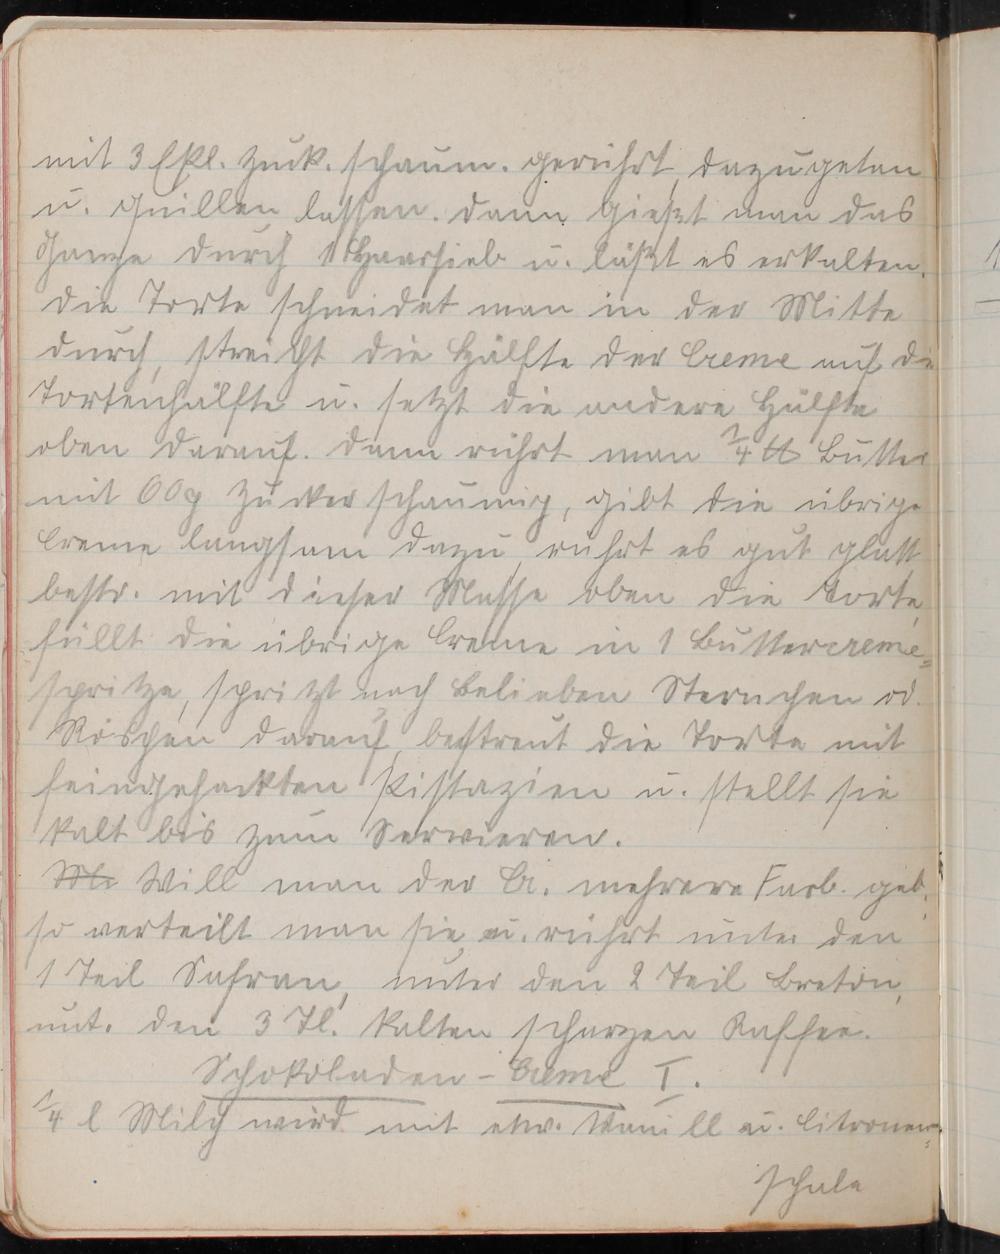 mit 3 Eßl. Zuck. schaum. gerührt, dazugetan
u. quillen lassen. Dann gießt man das
Ganze durch 1 Haarsieb u. läßt es erkalten.
Die Torte schneidet man in der Mitte
durch, streicht die Hälfte der Creme auf die
Tortenhälfte u. setzt die andere Hälfte
oben darauf. Dann rührt man 1/4 ℔ Butter
mit 60g Zucker schaumig, gibt die übrige
Creme langsam dazu, rührt es gut glatt
bestr. mit dieser Masse oben die Torte,
füllt die übrige Creme in 1 Buttercreme-
spritze, spritzt nach Belieben Sternchen od.
Röschen darauf, bestreut die Torte mit
feingehackten Pistazien u. stellt sie
kalt bis zum Servieren.
Will man der Cr. mehrere Farb. geb.
so verteilt man sie u. rührt unter den
1 Teil Safran, unter den 2 Teil Breton,
unt. den 3 Tl. kalten scharzen Kaffee.
Schokoladen - Creme I.
1/4 l Milch wird mit etw. Vanill u. Citronen-
schale